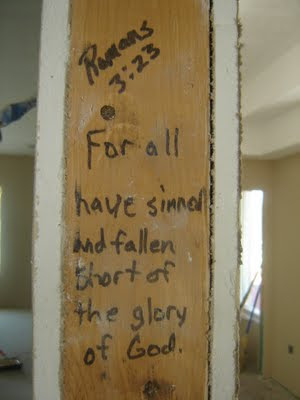 Romans
3:23
For all
have sinned
and fallen
short of
the glory
of God.